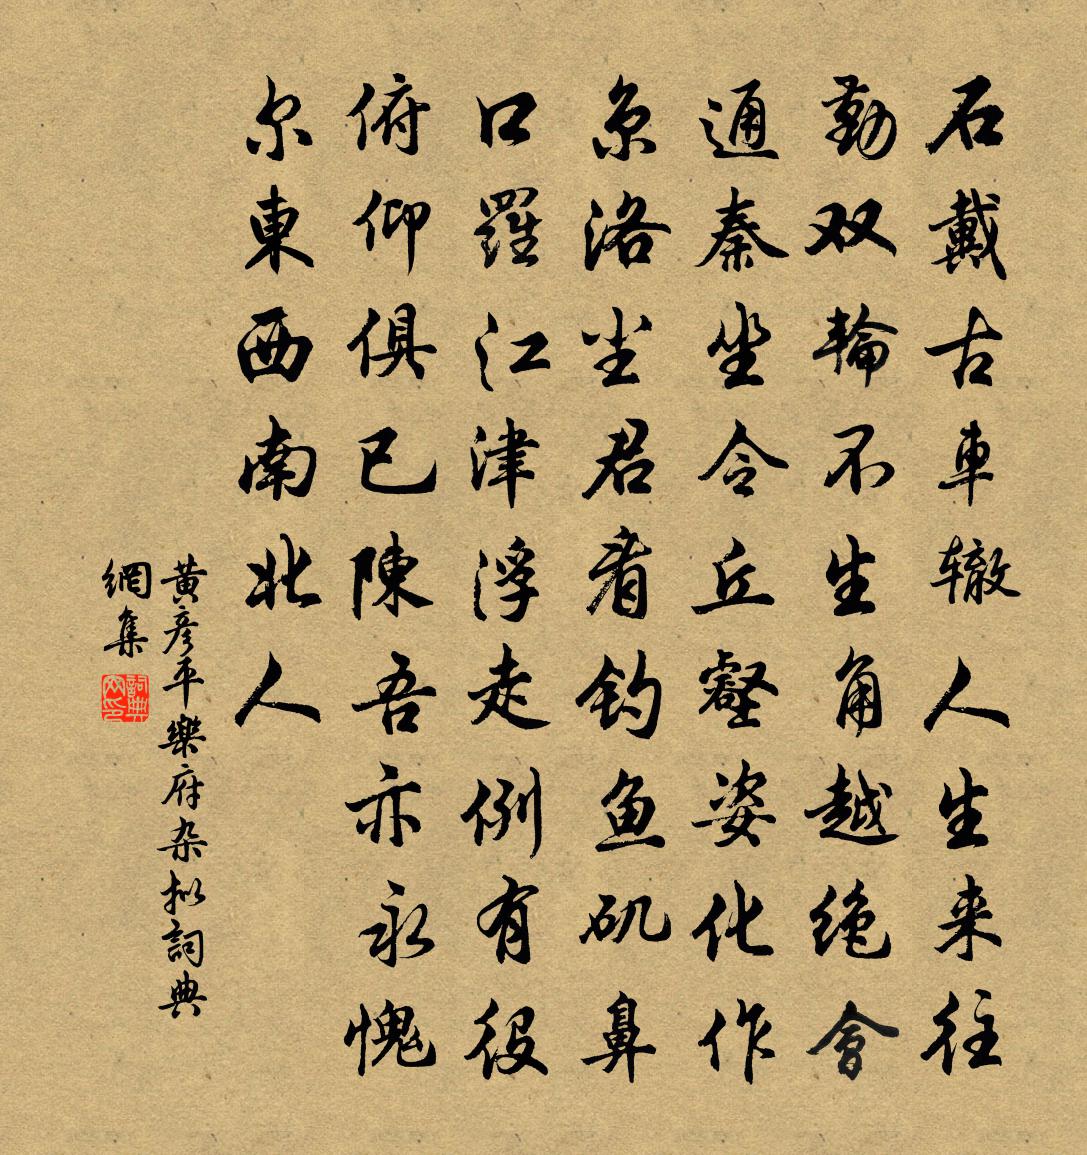 石戴古車辙人生来往
勤双輪不生角越绝會
通秦坐令丘壑姿化作
京洛尘君看钓鱼矶鼻
口羅江津浮走例有役
俯仰俱已陳吾亦永愧
尔東西南北人
黄彦平樂府杂拟詞典
網集
詞典